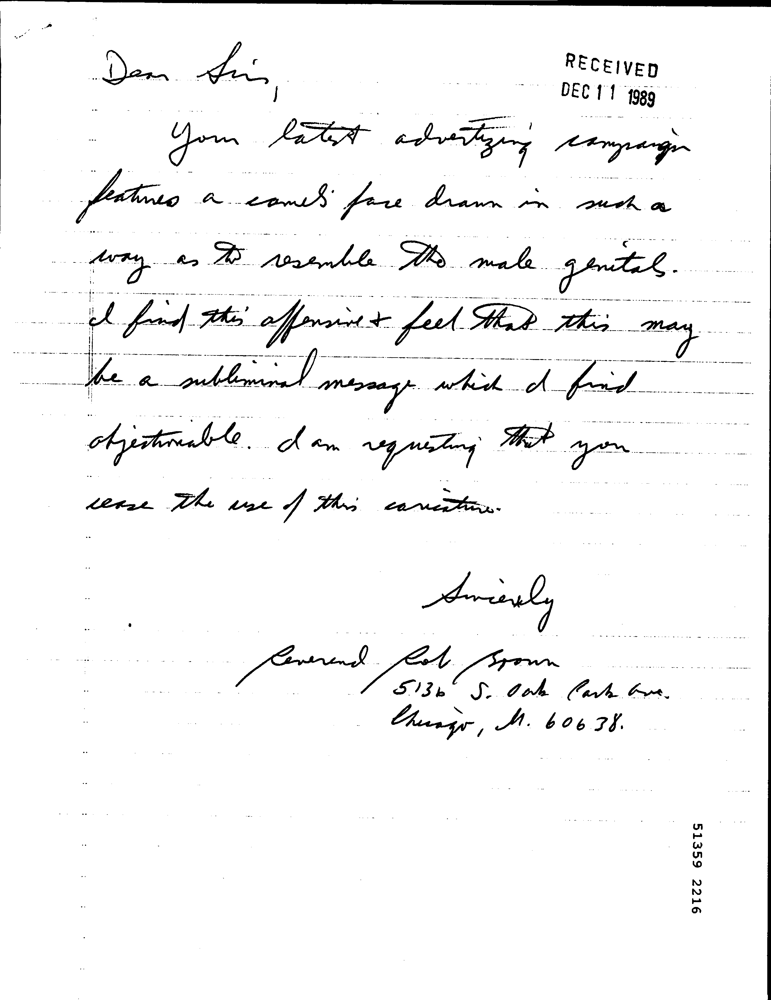 Dear Sirs,
RECEIVED
DEC 11 1989
Your latest advertizing campaign
features a camel's face drawn in such a
way as to resemble the male genitals.
I find this offensive + feel that this may
be a subliminal message which I find
objectionable. I am requesting that you
cease the use of this caricature.
Sincerely
Reverend Rob Brown
5136 S. Oak Park Ave.
Chicago, Il. 60638.
51359 2216